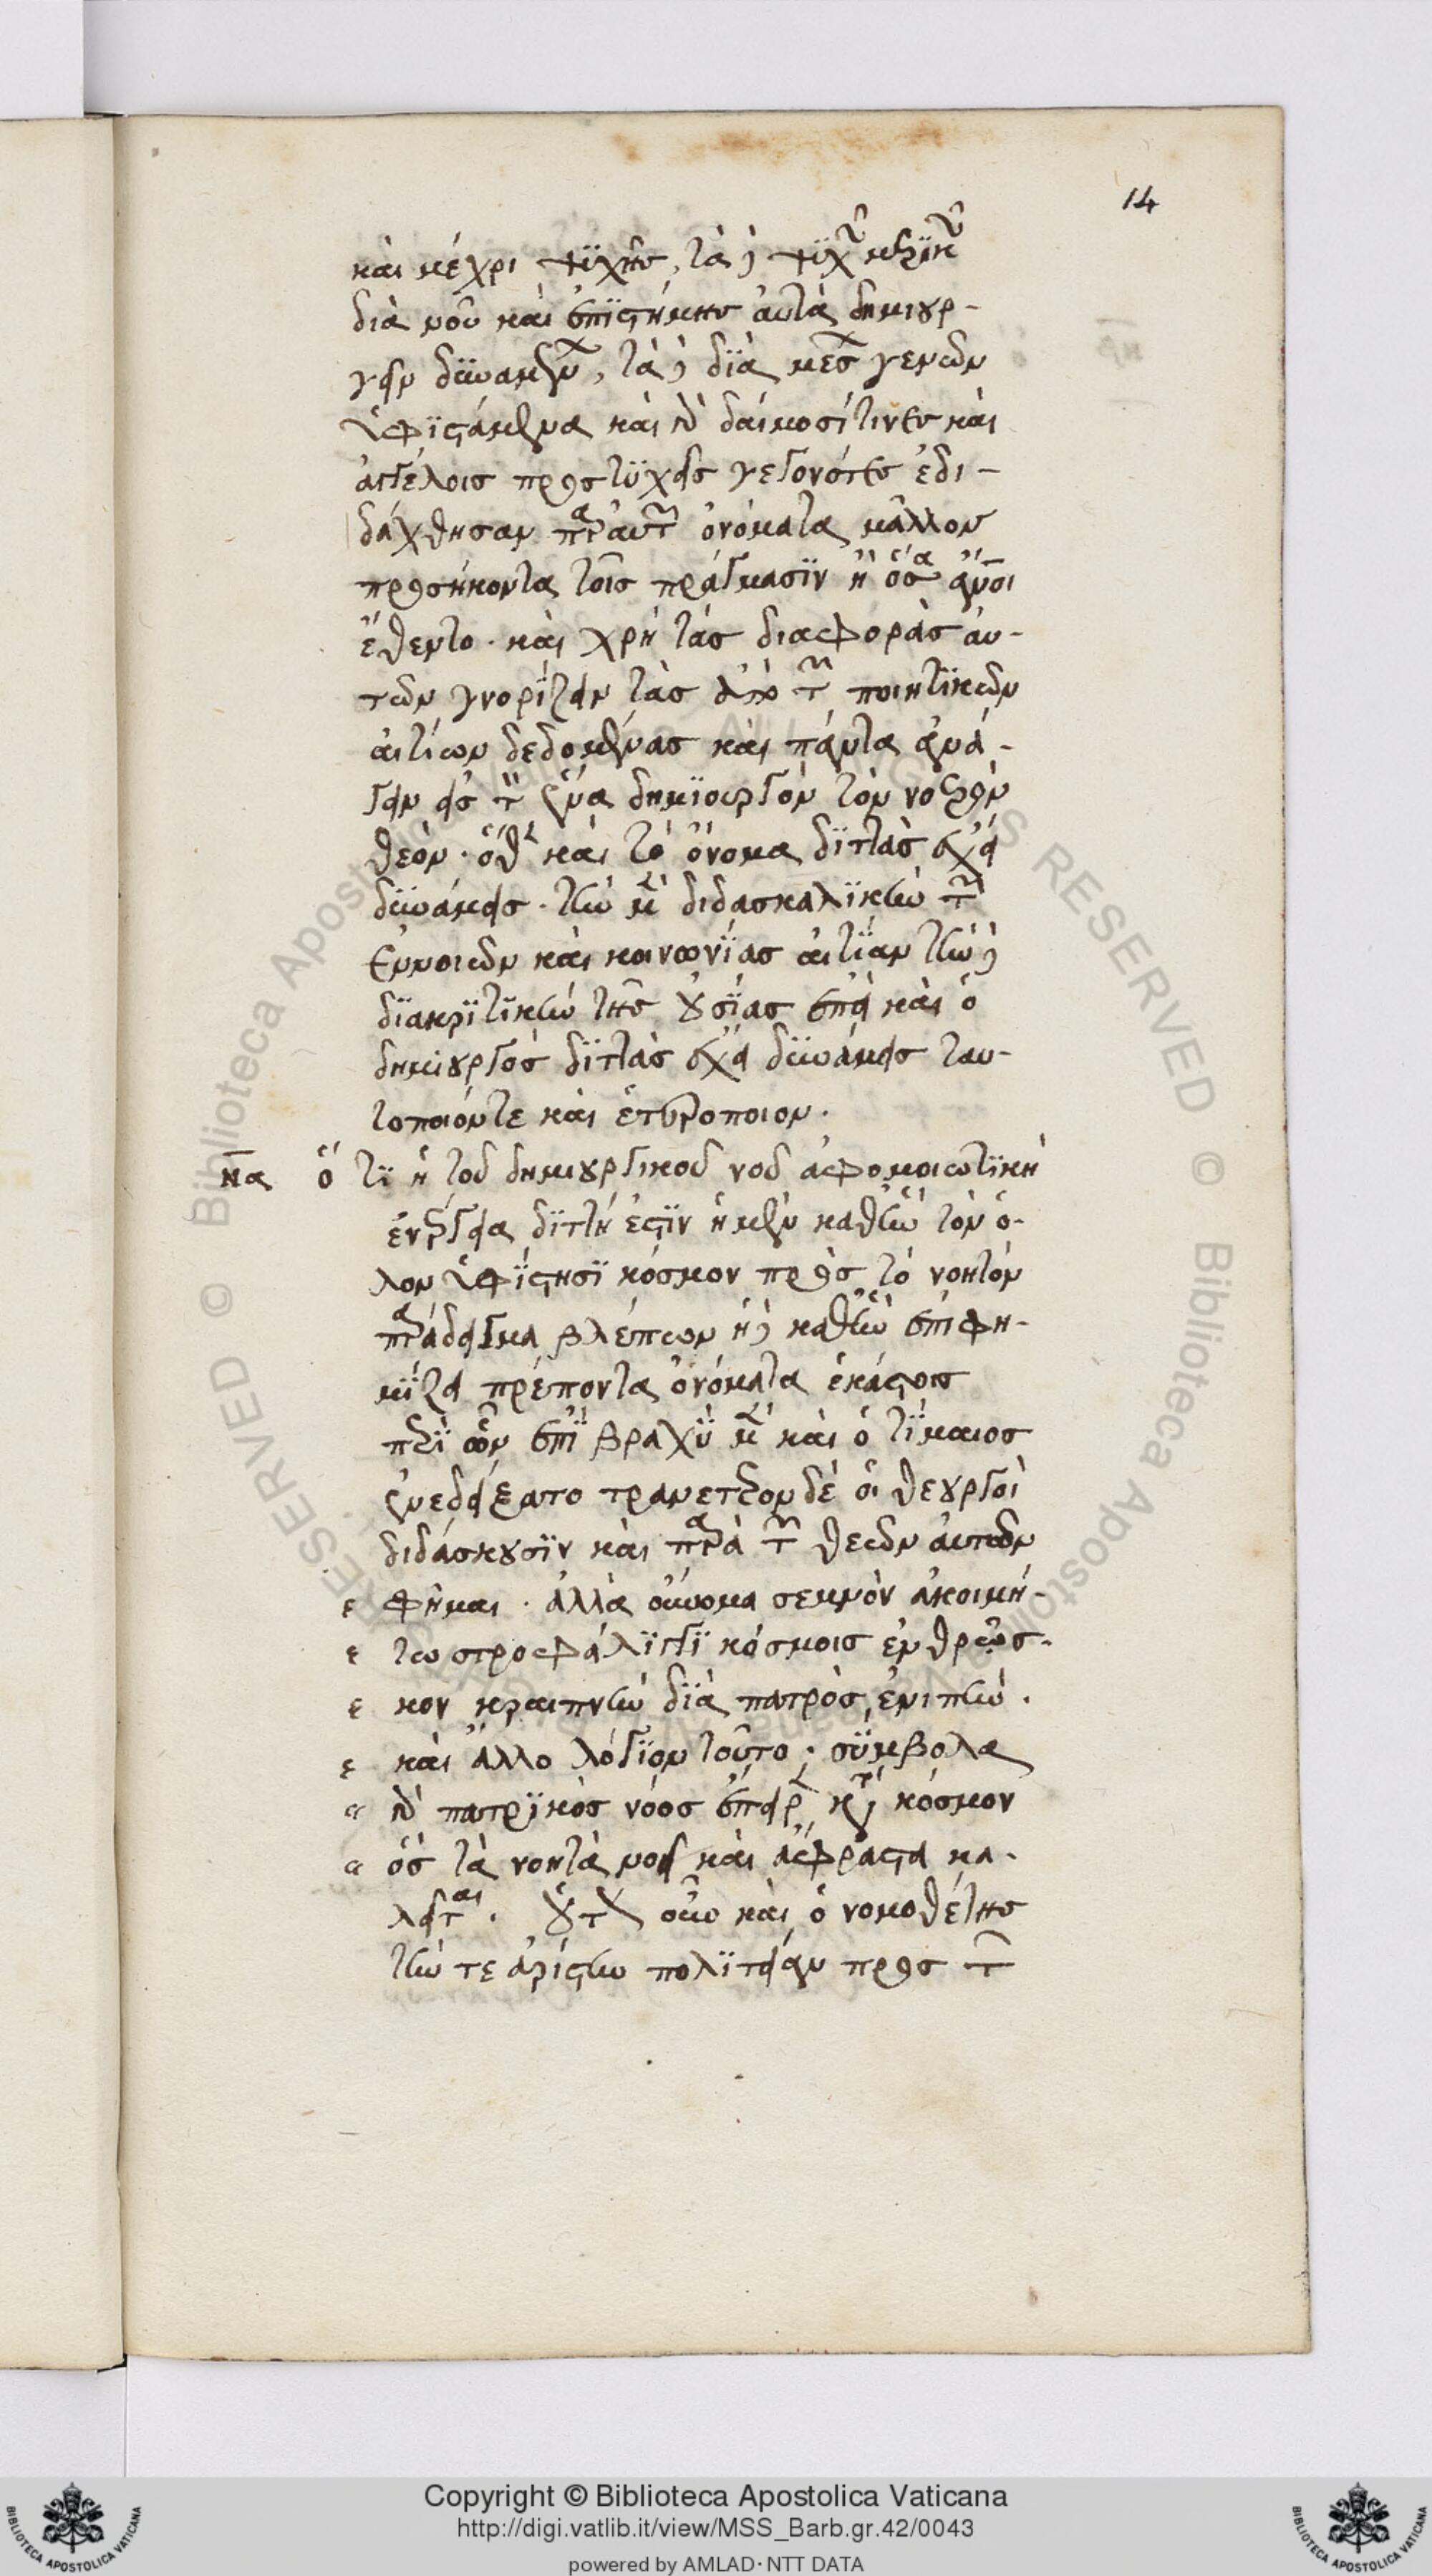 14
καὶ μέχρι ψϋχῆς, τὰ δὲ ψϋχῶν μερϊκῶν
διὰ νοῦ καὶ ἐπϊστήμης αὐτὰ δημιουρ-
γεῖν δϋναμένων, τὰ δὲ δϊὰ μέσων γενῶν
ὑφϊστάμενα καὶ γὰρ δαίμοσί τινες καὶ
ἀγγέλοις προστϋχεῖς γεγονότες ἐδι-
δάχθησαν παρ' αὐτῶν ὀνόματα μᾶλλον
προσήκοντα τοῖς πράγμασϊν ἢ ὅσα ἄνοι
ἔθεντο. καὶ χρὴ τὰς διαφορὰς αὐ-
τῶν γνορίζειν τὰς ἀπὸ τῶν ποιητϊκῶν
αἰτίων δεδομένας καὶ πάντα ἀνά-
γειν εἰς τὸν ἕνα δημϊουργὸν τὸν νοερὸν
θεόν. ὅθεν καὶ τὸ ὄνομα δϊττὰς ἔχει
δϋνάμεις. τὴν μὲν διδασκαλϊκὴν τῶν
ἐννοιῶν καὶ κοινωνΐας αἰτΐαν τὴν δὲ
δϊακρϊτϊκὴν τῆς οὐσΐας ἐπεὶ καὶ ὁ
δημιουργὸς δϊττὰς ἔχει δϋνάμεις ταυ-
τοποιόντε καὶ ἑτεροποιον.
να ὅτϊ ἡ τοῦ δημιουργικοῦ νοῦ ἀφομοιωτϊκὴ
ἐνέργεια δϊττή ἐστϊν ἡ μὲν καθ' ἣν τὸν ὅ-
λον ὑφΐστησϊ κόσμον πρὸς τὸ νοητὸν
παράδειγμα βλέπων ἡ δὲ καθ' ἣν ἐπιφη-
μΐζει πρέποντα ὀνόματα ἑκάστοις
περϊ ὧν ἐπϊ βραχϋ μὲν καὶ ὁ τΐμαιος
ἐνεδείξατο τρανέτερον δὲ οἱ θεουργοὶ
διδάσκουσϊν καὶ παρὰ τῶν θεῶν αὐτῶν
φῆμαι. ἀλλὰ οὔνομα σεμνὸν ἀκοιμή-
τω στροφάλϊγγϊ κόσμοις ἐνθρῶσ-
κον κραιπνὴν διὰ πατρὸς ἐνιπὴν.
καὶ ἄλλο λόγϊον τοῦτο. σΰμβολα
γὰρ πατρϊκὸς νόος ἔσπειρεν κατὰ κόσμον
ὃς τὰ νοητὰ νοεῖ καὶ ἄφραστα κα-
λεῖται. οὕτως οὖν καὶ ὁ νομοθέτης
τήν τε ἀρίστην πολϊτείαν πρὸς τὸν
Copyright © Biblioteca Apostolica Vaticana
http://digi.vatlib.it/view/MSS_Barb.gr.42/0043
powered by AMLAD·NTT DATA